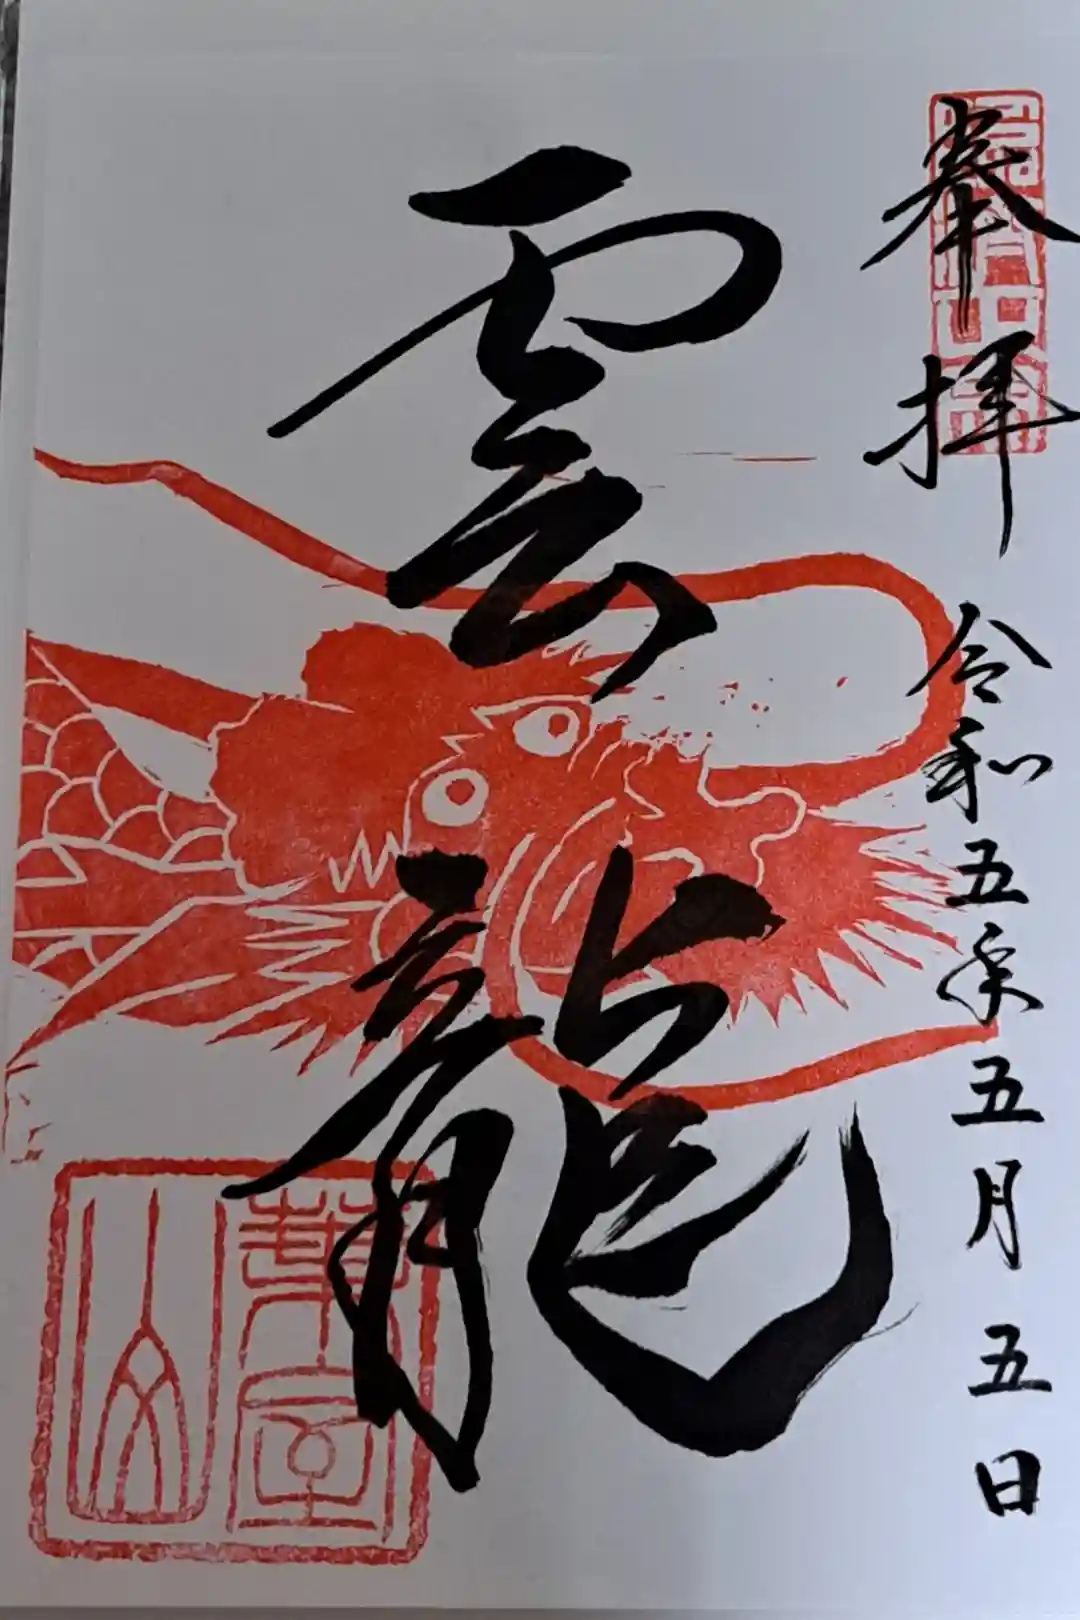 奉拝
令和五年五月五日
雲龍